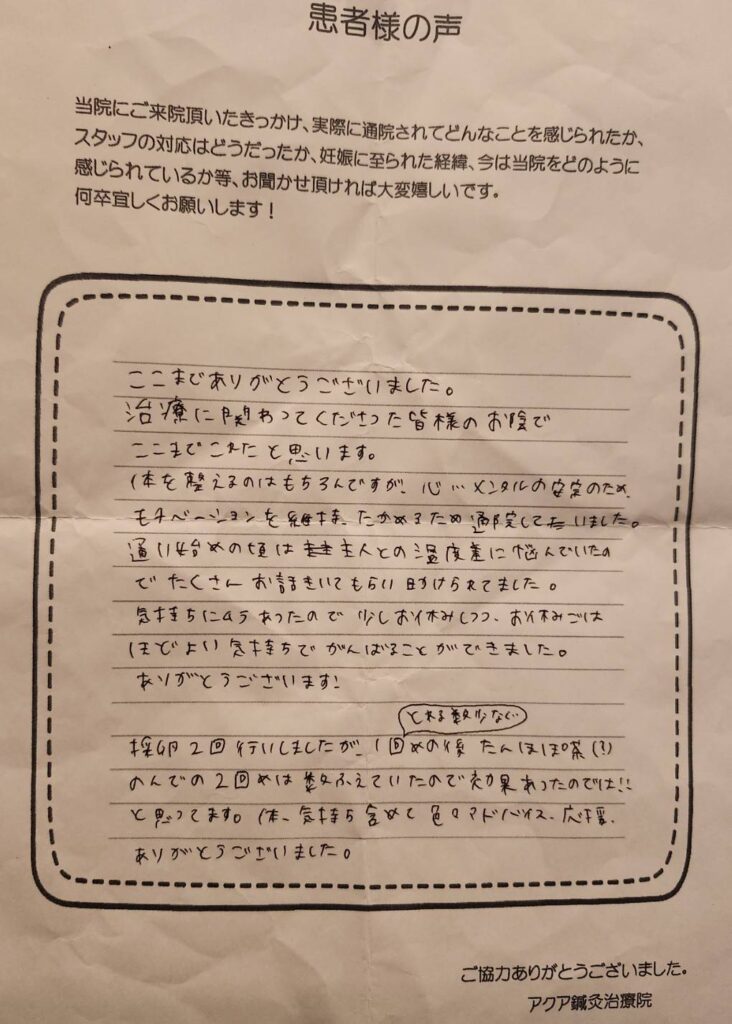 患者様の声
当院にご来院頂いたきっかけ、実際に通院されてどんなことを感じられたか、
スタッフの対応はどうだったか、妊娠に至られた経緯、今は当院をどのように
感じられているか等、お聞かせ頂ければ大変嬉しいです。
何卒宜しくお願いします！
ここまでありがとうございました。
治療に関わってくださった皆様のお陰で
ここまでこれたと思います。
体を整えるのはもちろんですが、心…メンタルの安定のため、
モチベーションを維持、たかめるため通院していました。
通い始めの頃は主人との温度差に悩んでいたの
でたくさんお話きいてもらい助けられてました。
気持ちにムラあったので少しお休みしつつ、お休みごは
ほどよい気持ちでがんばることができました。
ありがとうございます!
とれる数少ない
採卵2回行いしましたが、1回めの後たんぽぽ茶(?)
のんでの2回めは数ふえていたので効果あったのでは!!
と思ってます。体、気持ち含めて色々アドバイス、応援、
ありがとうございました。
ご協力ありがとうございました。
アクア鍼灸治療院